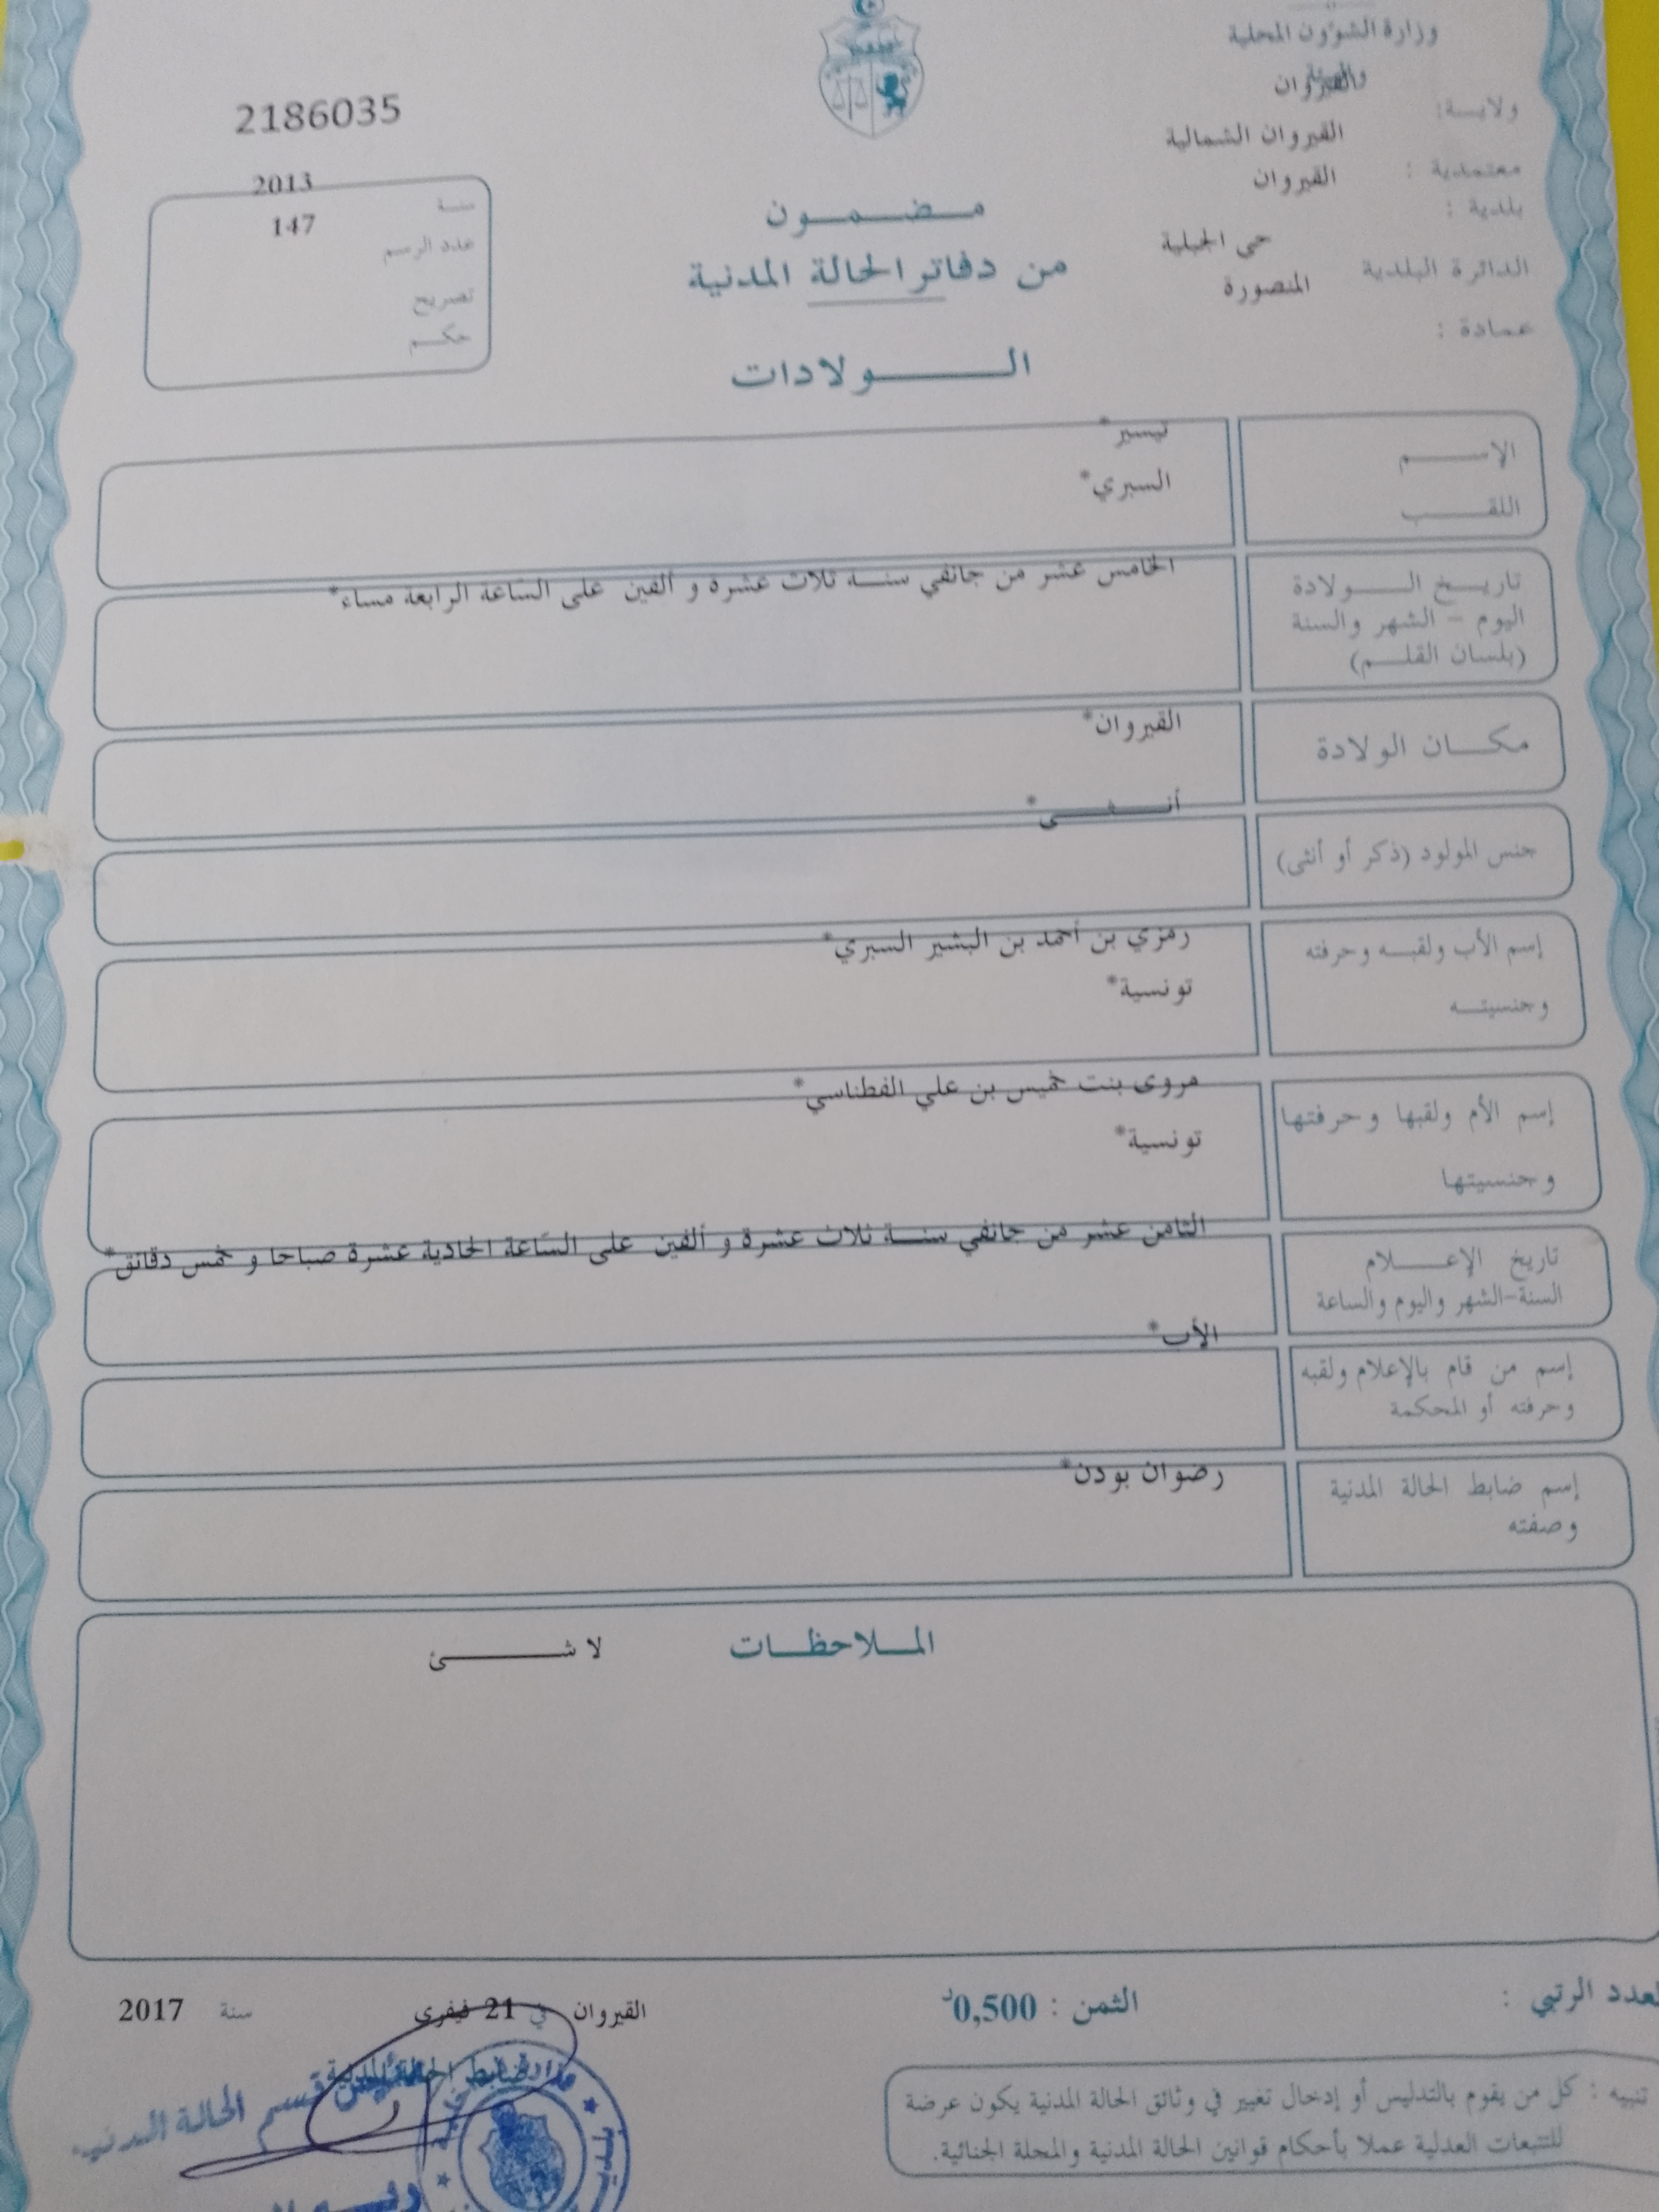 وزارة الشؤون المحلية
والبيئة
ولايـــة: القيروان
معتمدية : القيروان الشمالية
بلدية : القيروان
الدائرة البلدية حي الجبلية
عمادة : المنصورة
2186035
سنة 2013
عدد الرسم 147
تصريح
حكـــم
مـــضـــمـــون
من دفاتر الحالة المدنية
الـــولادات
الإســـم تيسير*
اللقـــب السبري*
تاريـــخ الـــولادة الخامس عشر من جانفي سنـــة ثلاث عشرة و ألفين على السّاعة الرابعة مساء*
اليوم - الشهر والسنة
(بلسان القلـــم)
مكـــان الولادة القيروان*
جنس المولود (ذكر أو أنثى) أنـــثـــى*
إسم الأب ولقبـــه وحرفته رمزي بن أحمد بن البشير السبري*
وجنسيتـــه تونسية*
إسم الأم ولقبها وحرفتها مروى بنت خميس بن علي الفطناسي*
وجنسيتها تونسية*
تاريخ الإعـــلام الثامن عشر من جانفي سنـــة ثلاث عشرة و ألفين على السّاعة الحادية عشرة صباحا و خمس دقائق*
السنة-الشهر واليوم والساعة
إسم من قام بالإعلام ولقبه الأب*
وحرفته أو المحكمة
إسم ضابط الحالة المدنية رضوان بودن*
وصفته
المـــلاحظـــات لا شـــئ
لعدد الرتبي :
الثمن : 0,500د
القيروان في 21 فيفري سنة 2017
ضابط الحالة المدنية
قسم الحالة المدنية
تنبيه : كل من يقوم بالتدليس أو إدخال تغيير في وثائق الحالة المدنية يكون عرضة
للتتبعات العدلية عملا بأحكام قوانين الحالة المدنية والمجلة الجنائية.